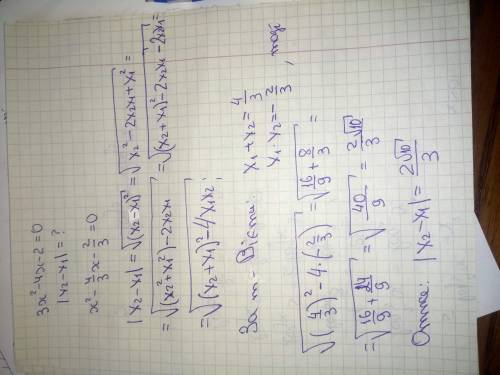 3x²-4x-2=0
|x₂-x₁|=?
x²-4/3x-2/3=0
|x₂-x₁|=√(x₂-x₁)²=√x₂²-2x₂x₁+x₁²=
=√(x₂²+x₁²)-2x₂x₁=√(x₂+x₁)²-2x₂x₁-2x₂x₁=
=√(x₂+x₁)²-4x₁x₂;
За т-Вієта: x₁+x₂=4/3
x₁·x₂=-2/3, тоді
√(4/3)²-4·(-2/3)=√16/9+8/3=
=√16/9+24/9=√40/9=2√10/3
Отже: |x₂-x₁|=2√10/3